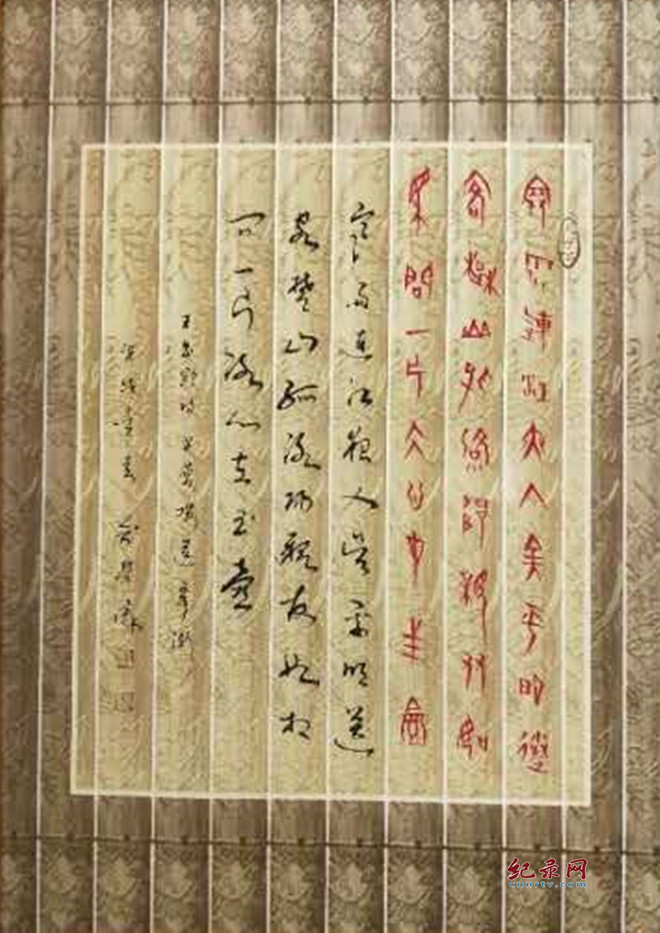 寒雨連江夜入吳平明送
客楚山孤洛陽親友如
相問一片冰心在玉壺
寒雨连江夜入吴平明送
客楚山孤洛阳亲友如相
问一片冰心在玉壶
王昌龄诗芙蓉楼送辛渐
纪录网